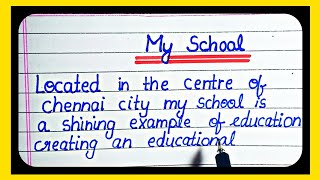 My School
Located in the centre of
chennai city my school is
a shining example of education
creating an educational